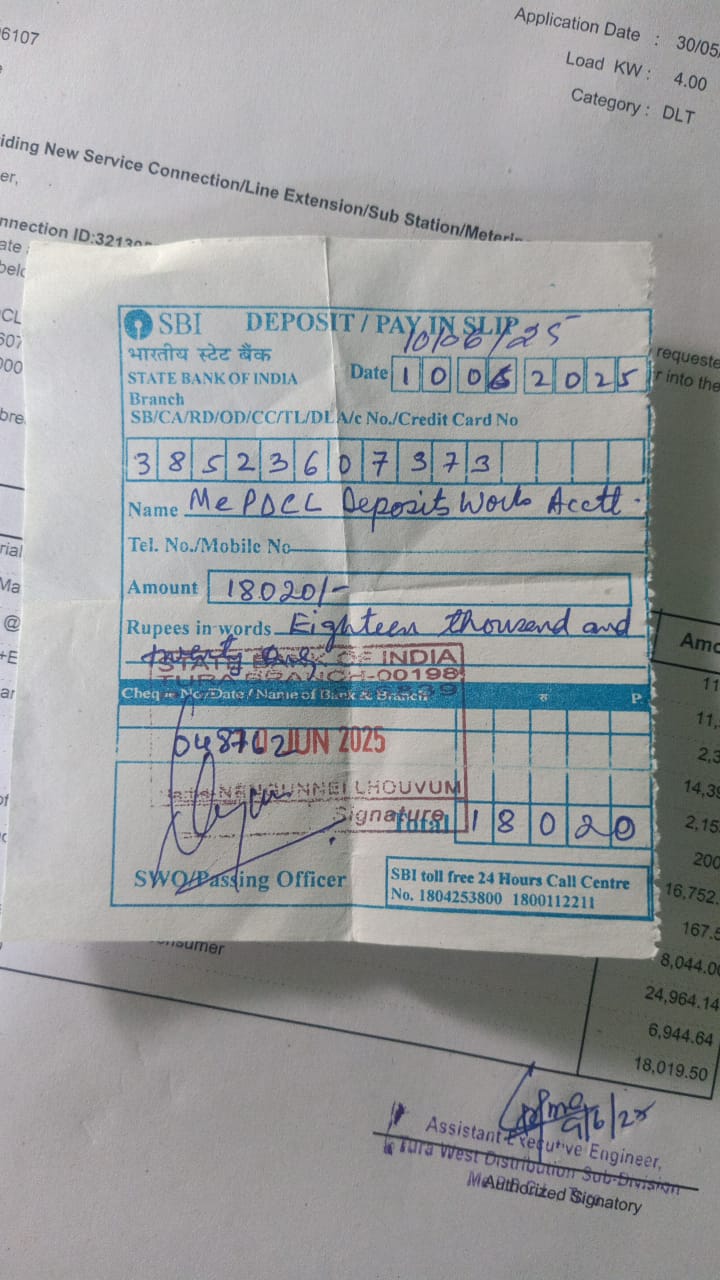 6107
Application Date : 30/05/
Load KW : 4.00
Category : DLT
iding New Service Connection/Line Extension/Sub Station/Meterin
er,
nnection ID:32130
ate
belo
CL
607
000
requeste
r into the
bre
SBI DEPOSIT / PAY IN SLIP
10/06/25
भारतीय स्टेट बैंक
STATE BANK OF INDIA
Date 10 06 2025
Branch
SB/CA/RD/OD/CC/TL/DL A/c No./Credit Card No
38523607373
Name MePDCL Deposits Work Acctt.
Tel. No./Mobile No
Amount 18020/-
Rupees in words Eighteen thousand and
twenty only
STATE BANK OF INDIA
TURA BRANCH-00198
Cheque No/Date / Name of Bank & Branch रु P.
048762
10 JUN 2025
LHOUVUM
Signature
Total 18020
SWO/Passing Officer
SBI toll free 24 Hours Call Centre
No. 1804253800 1800112211
rial
Ma
@
+E
ar
of
Amo
11
11,
2,3
14,39
2,15
200
16,752.
167.5
8,044.00
24,964.14
6,944.64
18,019.50
onsumer
9/6/25
Assistant Executive Engineer,
Tura West Distribution Sub-Division
Authorized Signatory